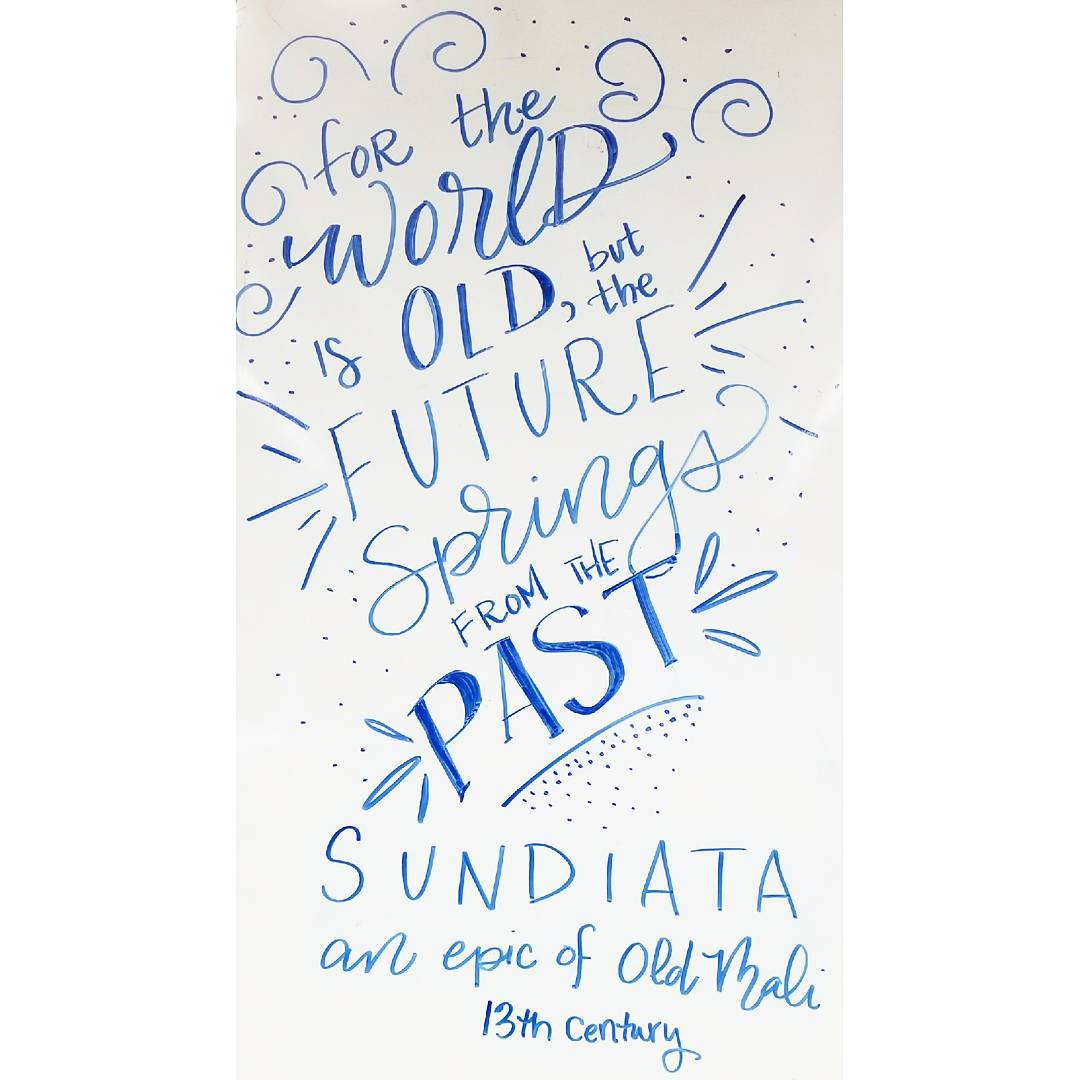 foR the
WorlD
is OLD, but the
FUTURE
Springs
FROM THE
PAST
SUNDIATA
an epic of Old Mali
13th Century